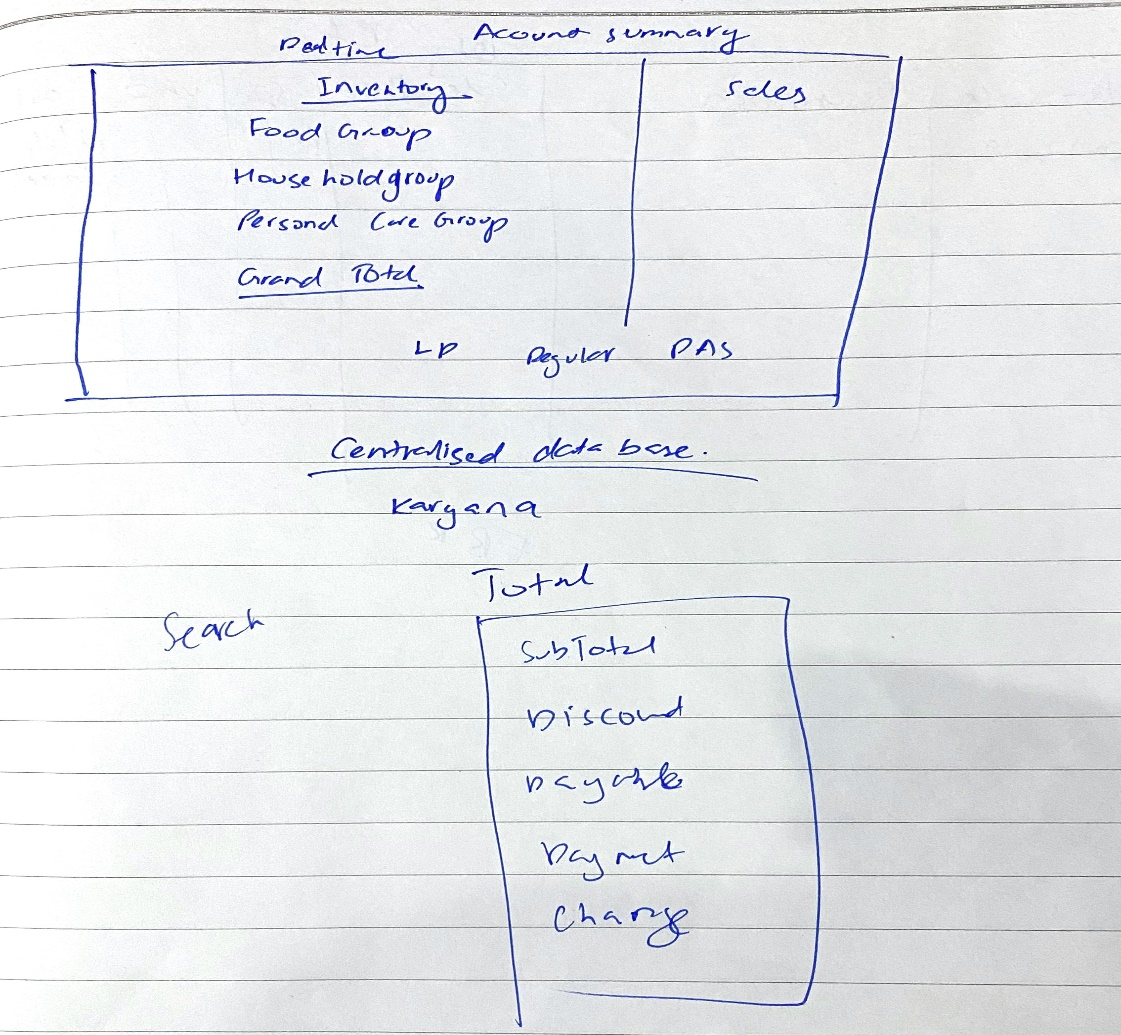 Realtime Account summary
Inventory Sales
Food Group
House hold group
Personal Care Group
Grand Total
LP Regular PAS
Centralised data base.
Karyana
Total
Search
SubTotal
Discount
Payable
Payment
Change